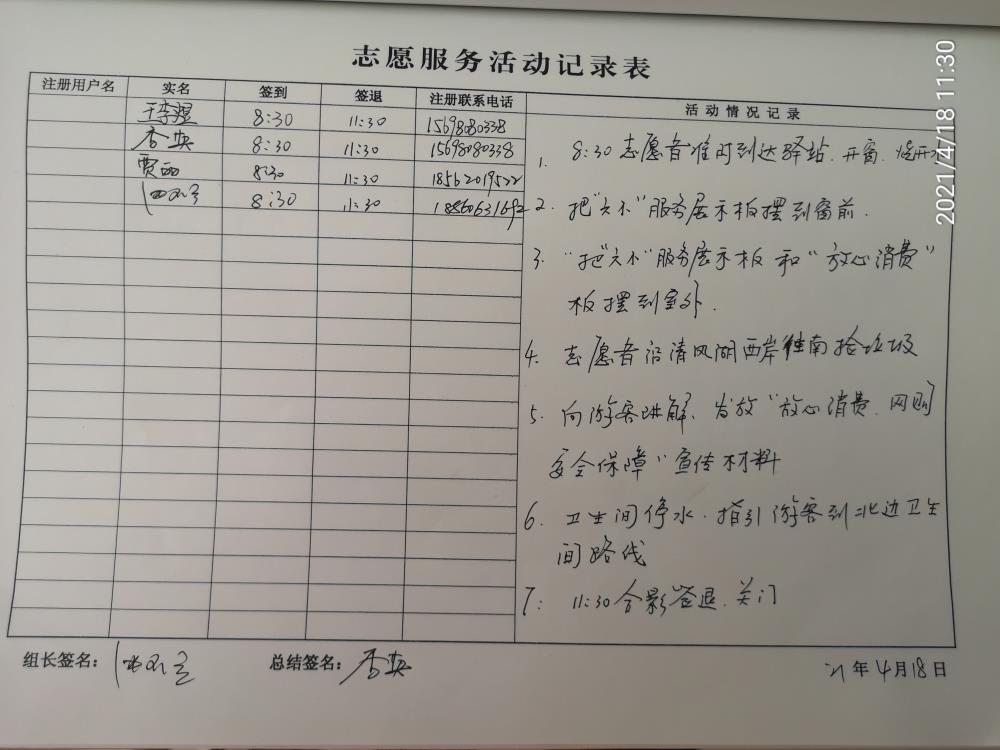 志愿服务活动记录表
注册用户名 实名 签到 签退 注册联系电话 活动情况记录
8:30 11:30 15698080338
8:30 11:30 15698080338
贾 8:30 11:30 18562019522
8:30 11:30 18560631692
1. 8:30志愿者准时到达驿站.开窗.烧开水
2. 把"六不"服务展示板摆到窗前.
3. "把"六不"服务展示板和"放心消费"
板摆到室外.
4. 志愿者沿清风湖西岸往南捡垃圾
5. 向游客讲解、发放"放心消费.网购
安全保障"宣传材料
6. 卫生间停水.指引游客到北边卫生
间路线
7: 11:30合影签退.关门
组长签名: 总结签名: 21年4月18日
2021/4/18 11:30